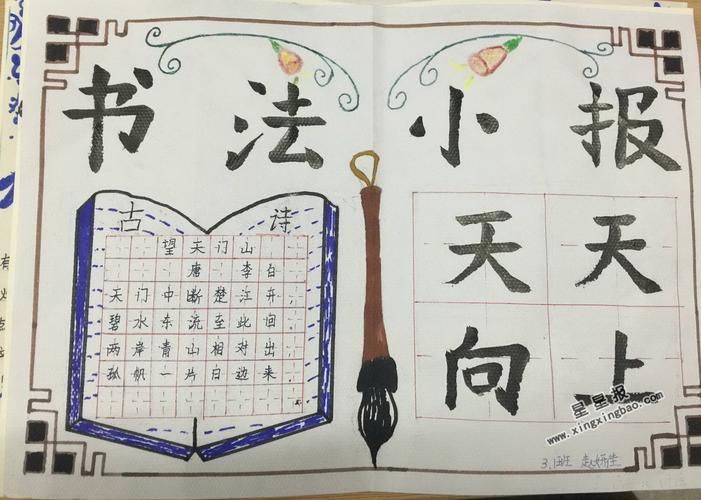 书法小报
古诗
望天门山
唐 李白
天门中断楚江开，
碧水东流至此回。
两岸青山相对出，
孤帆一片日边来。
天天
向上
星星报
www.xingxingbao.com
3.1班